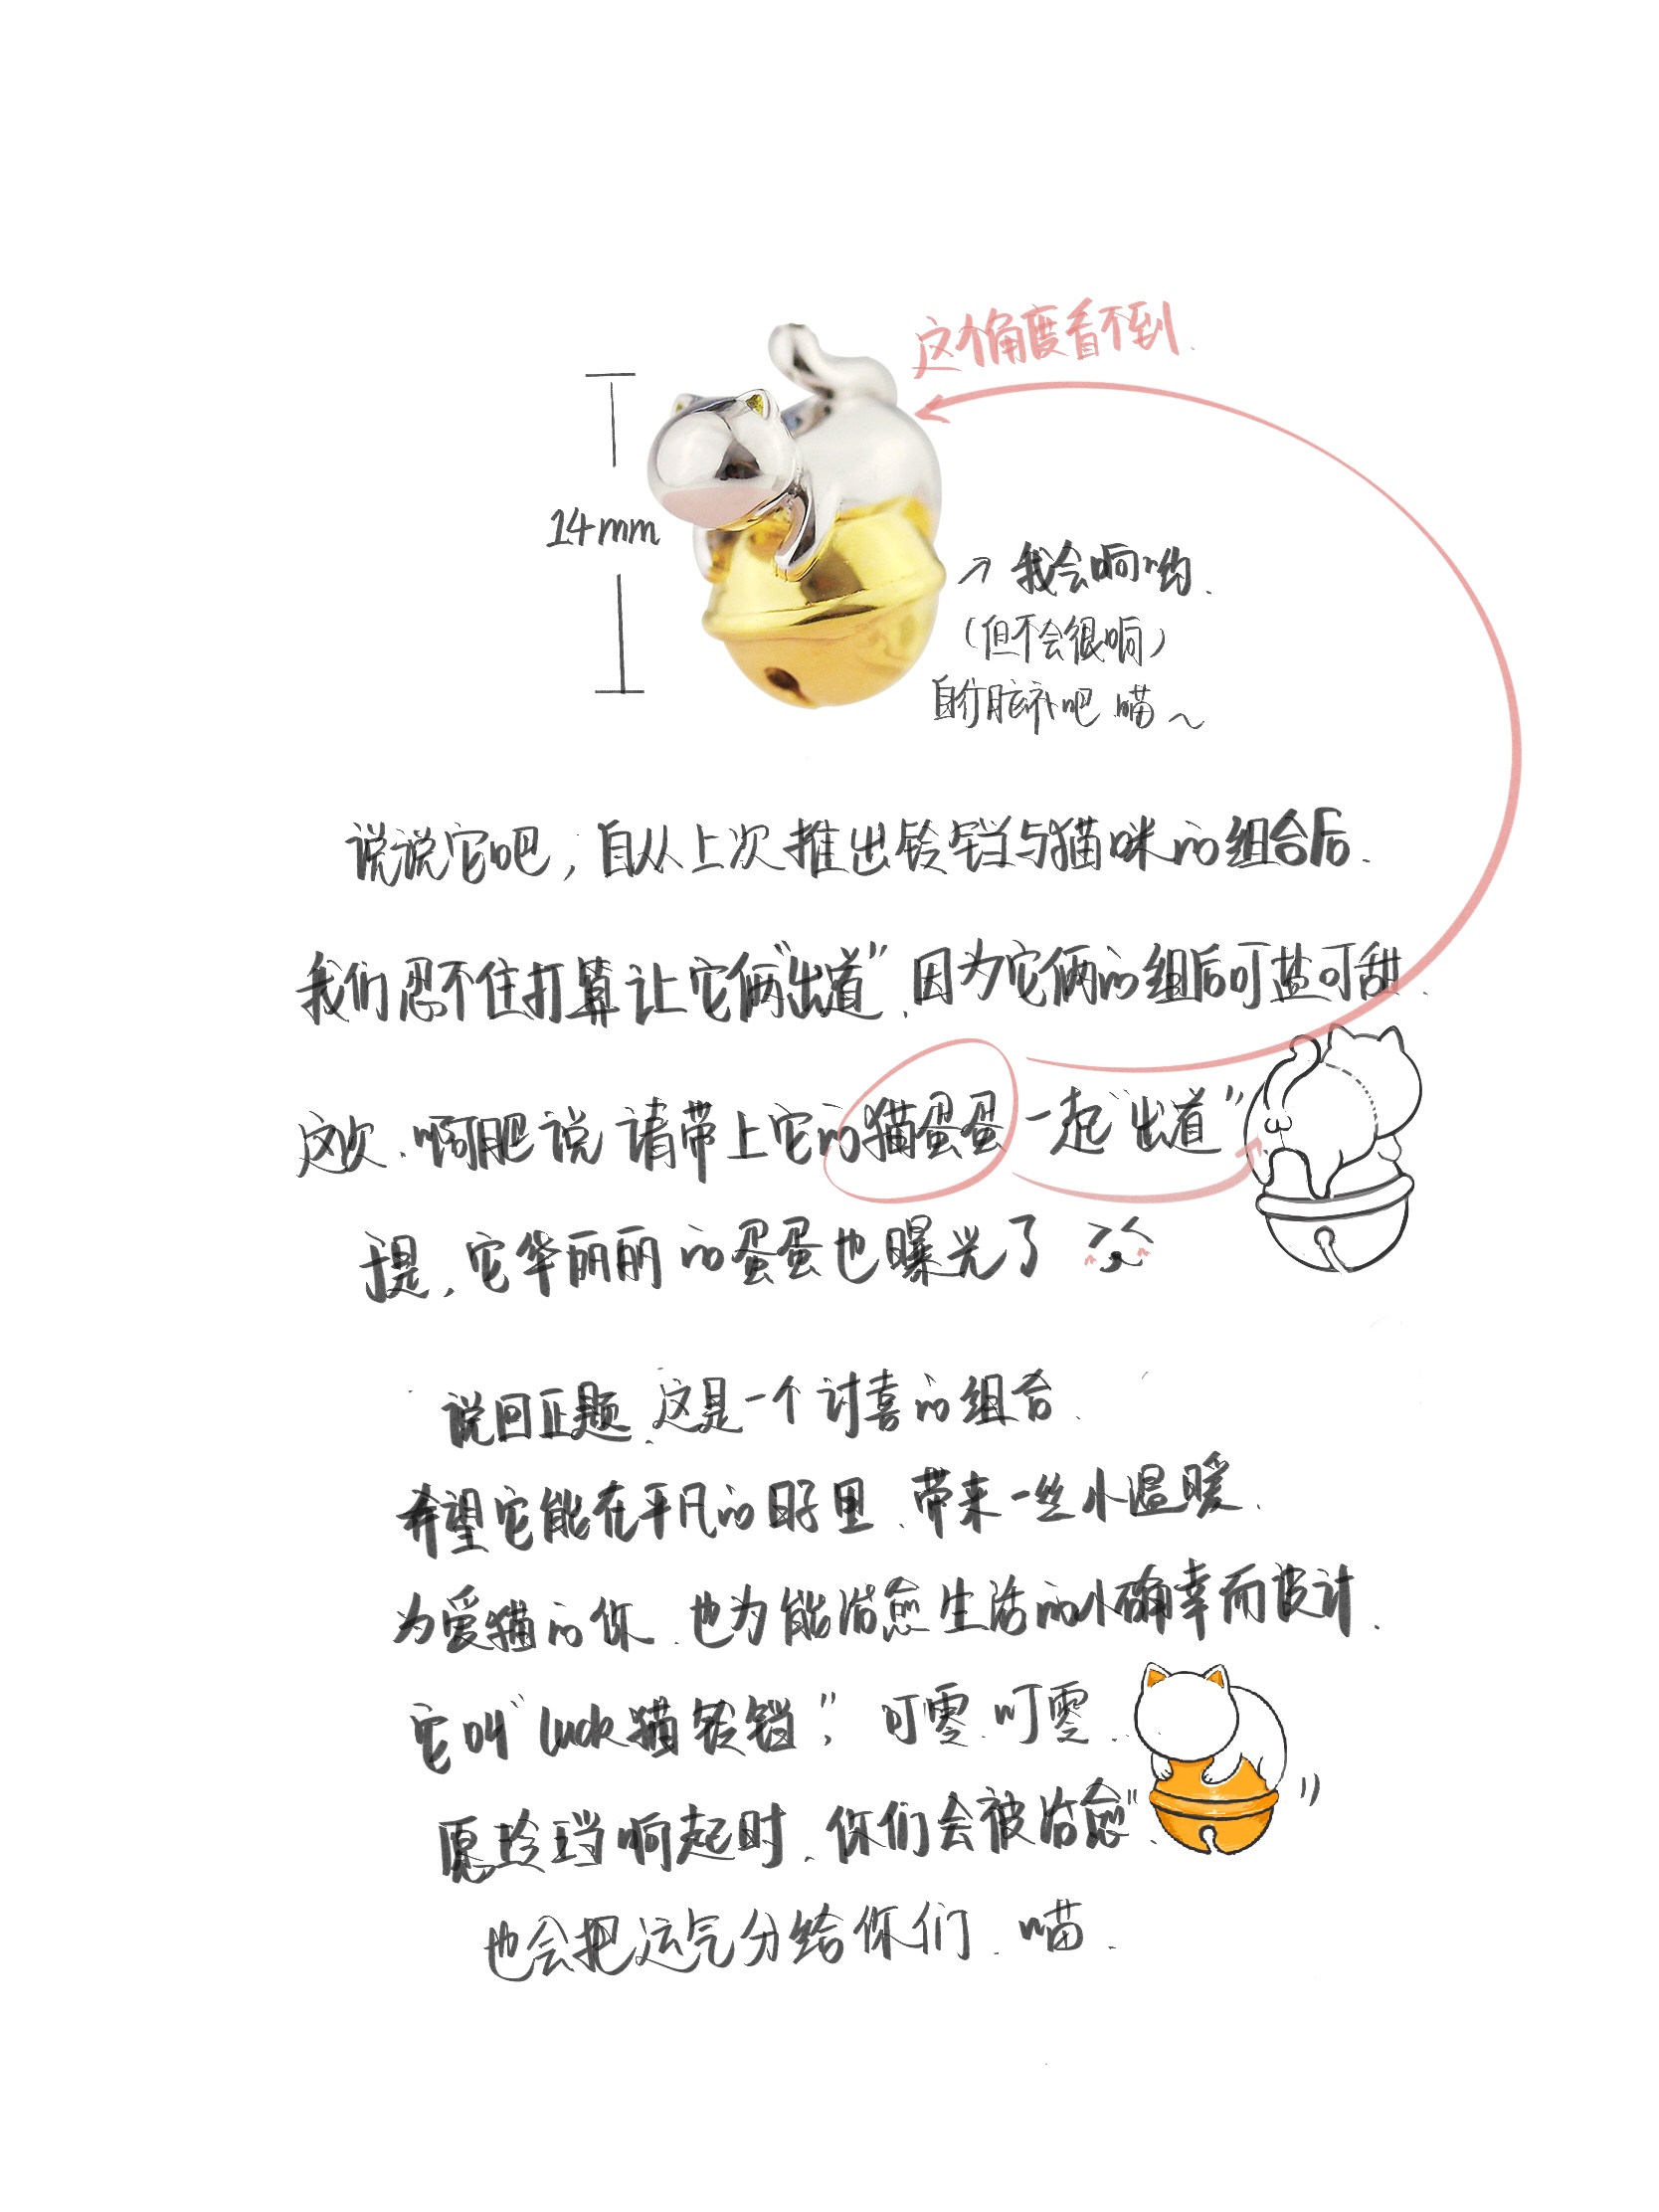 这个角度看不到.
14mm
我会响哟.
(但不会很响)
自行脑补吧 喵～
说说它吧,自从上次推出铃铛与猫咪的组合后.
我们忍不住打算让它俩“出道”.因为它俩的组后可盐可甜.
这次.啊肥说请带上它的猫蛋蛋一起“出道”
于是,它华丽丽的蛋蛋也曝光了
说回正题.这是一个讨喜的组合.
希望它能在平凡的日子里.带来一丝小温暖.
为爱猫的你.也为能治愈生活的小确幸而设计.
它叫“luck猫铃铛”,叮零.叮零.
愿玲珰响起时.你们会被治愈”.
也会把运气分给你们.喵.